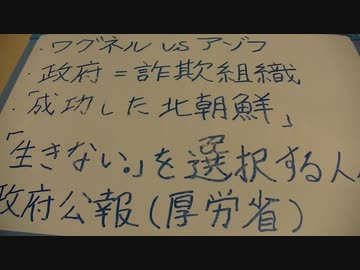 ・ワグネル vs アゾフ
・政府=詐欺組織
・「成功した北朝鮮」
「生きない。」を選択する人
政府公報(厚労省)